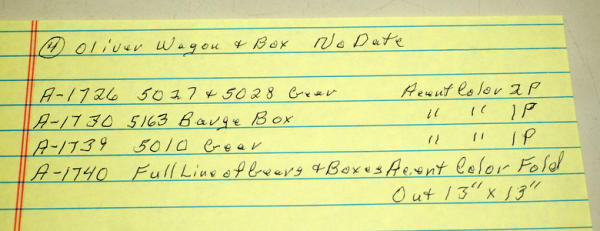 (4) Oliver Wagon & Box No Date
A-1726 5027 & 5028 Gear Acent Color 2P
A-1730 5163 Bavge Box " " 1P
A-1739 5010 Gear " " 1P
A-1740 Full Line of Gears & Boxes Acent Color Fold
Out 13" x 13"